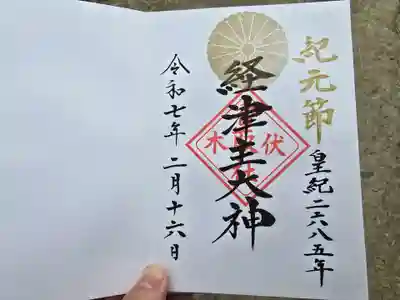 紀元節
皇紀二六八五年
経津主大神
令和七年二月十六日